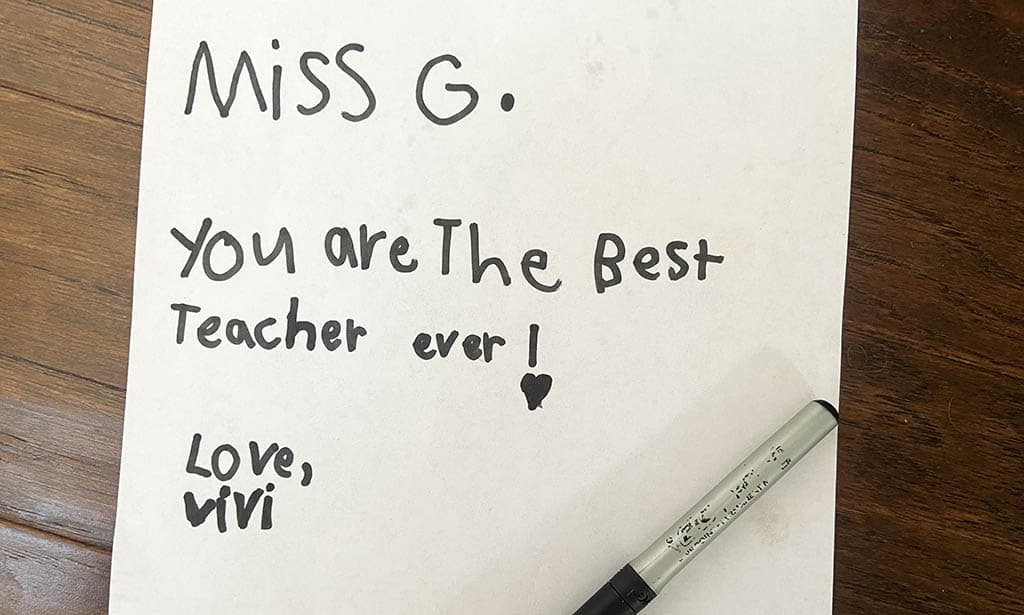 Miss G.
You are The Best
Teacher ever!
Love,
vivi